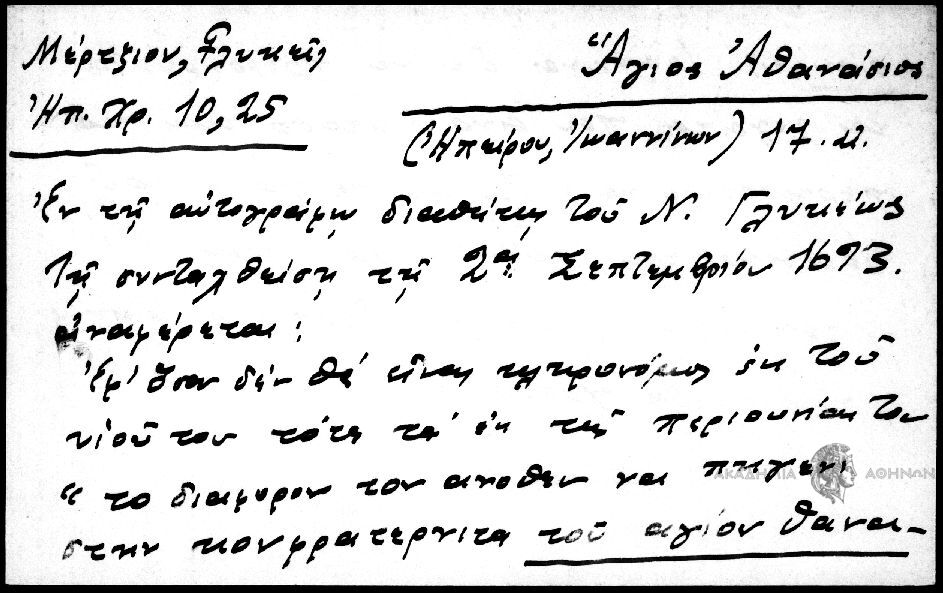 Μέρτζιου, Γλυκεῖς
Ἠπ. Χρ. 10, 25
Ἅγιος Ἀθανάσιος
(Ἠπείρου, Ἰωαννίνων) 17. αἰ.
Ἐν τῇ αὐτογράφῳ διαθήκῃ τοῦ Ν. Γλυκέως
τῇ συνταχθείσῃ τῇ 2ᾳ Σεπτεμβρίου 1693.
ἀναφέρεται:
Ἐφ' ὅσον δέν θά εἶναι κληρονόμος ἐκ τοῦ
υἱοῦ του τότε τά ἐκ τῆς περιουσίας του
“ το διαφορον του ανοθεν να πιγενι
στην κονφρατερνιτα τοῦ αγίου θανα-
ΑΚΑΔΗΜΙΑ ΑΘΗΝΩΝ